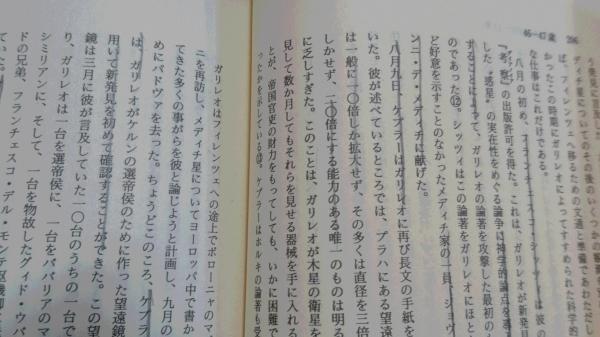 46-47歳 206
ディチ星についてのその後のいくつか
ば、フィレンツェへ移るための文通と準備であわただし
かったこの時期にガリレオによってすすめられた科学的
な仕事はこれだけである。
八月の初め、フランチェスコ・シッツィは彼の
『考察』の出版許可を得た。これは、ガリレオが新発見
した“惑星”の実在性をめぐる論争に神学的論点を導
することによって、ガリレオの論著を攻撃した最初のも
のであった⑫。シッツィはこの論著をガリレオにほと
ど好意を示すことのなかったメディチ家の一員、ジョヴ
ンニ・デ・メディチに献げた。
八月九日、ケプラーはガリレオに再び長文の手紙を
いた。彼が述べているところでは、プラハにある望遠
は一般に一〇倍しか拡大せず、その多くは直径を三倍
しかせず、二〇倍にする能力のある唯一のものは明る
に乏しすぎた。このことは、ガリレオが木星の衛星を
見して数か月してもそれらを見せる器械を手に入れる
とが、帝国官吏の財力をもってしても、いかに困難で
ったかを示している⑬。ケプラーはホルキの論著も受
ガリレオはフィレンツェへの途上でボローニャのマ
ニを再訪し、メディチ星についてヨーロッパ中で書か
てきた多くの事がらを彼と論じようと計画し、九月の
めにパドヴァを去った。ちょうどこのころ、ケプラ
は、ガリレオがケルンの選帝侯のために作った望遠鏡
用いて新発見を初めて確認することができた。この望
鏡は三月に彼が言及していた一〇台のうちの一台で
り、ガリレオは一台を選帝侯に、一台をバイエルンのマ
シミリアンに、そして、一台を物故したグイド・ウバ
ドの兄弟、フランチェスコ・デル・モンテ枢機卿に
ていた。